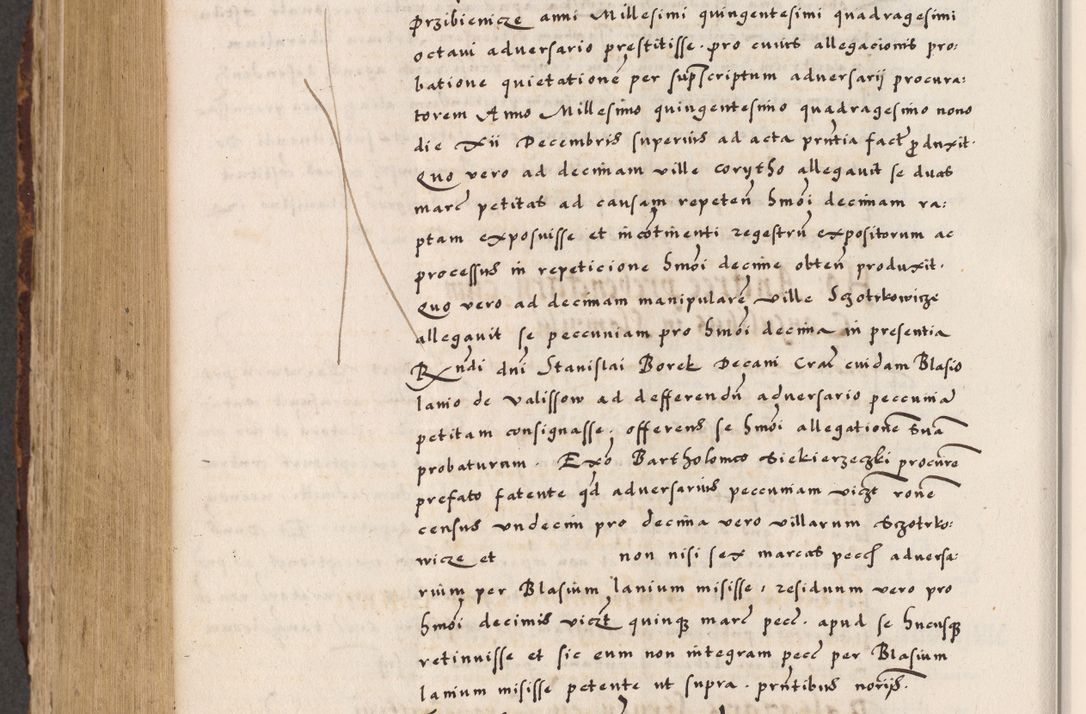 Przibienicze anni Millesimi quingentesimi quadragesimi
octaui adversario prestitisse. pro cuius allegacionis pro:
batione quietationē per sup̄scriptum adversarij procura:
torem Anno Millesimo quingentesimo quadragesimo nono
die Xii Decembris superius ad acta prn̄tia fact̄ produxit.
Quo vero ad decimam ville corytho allegauit se duas
marc̄ petitas ad causam repeten̄ hmōi decimam ra:
ptam exposuisse et incōtinenti regestrū expositorum ac
processus in repeticione hmōi decime obten̄ produxit.
Quo vero ad decimam manipularē ville Sczotrkowicze
allegauit se peccuniam pro hmōi decima in presentia
Rn̄di dn̄i Stanislai Borek Decani Crac̄ cuidam Blasio
lanio de valissow ad defferendū adversario peccuniā
petitam consignasse, offerens se hmōi allegationē suā
probaturum. Exō Bartholomeo Siekierzeczki procurē
prefato fatente qd̄ adversarius peccuniam vicz̄t ronē
census undecim pro decima vero villarum Sczotrko:
wicze et non nisi sex marcas pecc̄ adversa:
rium per Blasium lanium misisse, residuum vero pro
hmōi decimis vicz̄t quinqꝫ marc̄ pecc̄. apud se hucusqꝫ
retinuisse et sic eum non integram pecc̄ per Blasium
lanium misisse petente ut supra. prn̄tibus norijs.